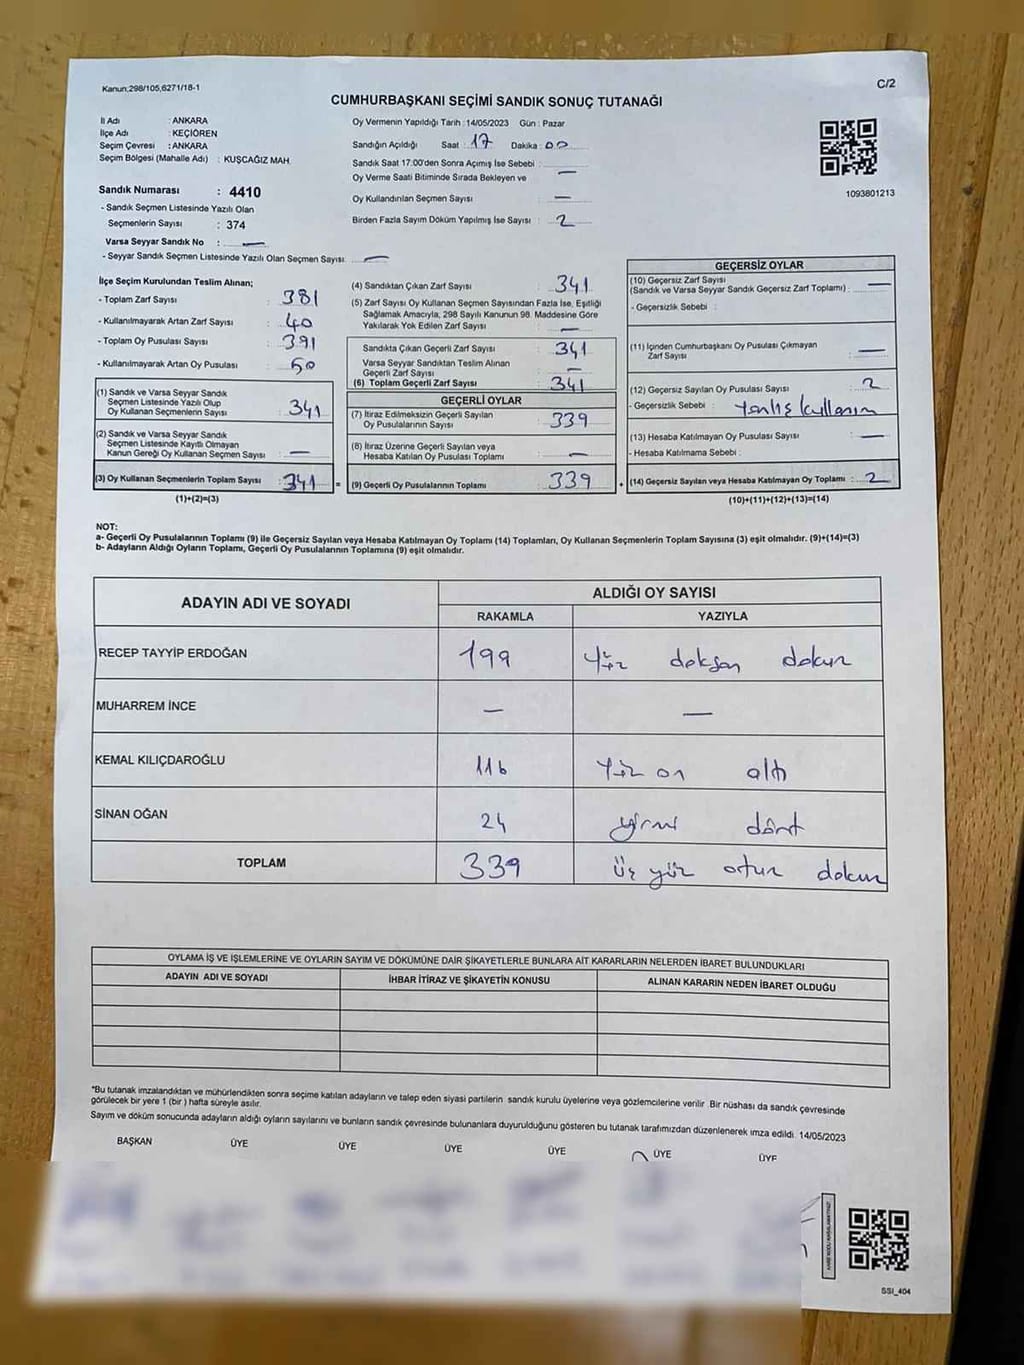 Kanun;298/105,6271/18-1
C/2
CUMHURBAŞKANI SEÇİMİ SANDIK SONUÇ TUTANAĞI
İl Adı : ANKARA
İlçe Adı : KEÇİÖREN
Seçim Çevresi : ANKARA
Seçim Bölgesi (Mahalle Adı) : KUŞCAĞIZ MAH.
Sandık Numarası : 4410
- Sandık Seçmen Listesinde Yazılı Olan
Seçmenlerin Sayısı : 374
Varsa Seyyar Sandık No : —
- Seyyar Sandık Seçmen Listesinde Yazılı Olan Seçmen Sayısı: —
Oy Vermenin Yapıldığı Tarih :14/05/2023 Gün : Pazar
Sandığın Açıldığı Saat : 17 Dakika : 00
Sandık Saat 17:00'den Sonra Açımış İse Sebebi : —
Oy Verme Saati Bitiminde Sırada Bekleyen ve
Oy Kullandırılan Seçmen Sayısı : —
Birden Fazla Sayım Döküm Yapılmış İse Sayısı : 2
1093801213
İlçe Seçim Kurulundan Teslim Alınan;
- Toplam Zarf Sayısı : 381
- Kullanılmayarak Artan Zarf Sayısı : 40
- Toplam Oy Pusulası Sayısı : 391
- Kullanılmayarak Artan Oy Pusulası : 50
(1) Sandık ve Varsa Seyyar Sandık
Seçmen Listesinde Yazılı Olup
Oy Kullanan Seçmenlerin Sayısı : 341
(2) Sandık ve Varsa Seyyar Sandık
Seçmen Listesinde Kayıtlı Olmayan
Kanun Gereği Oy Kullanan Seçmen Sayısı : —
(3) Oy Kullanan Seçmenlerin Toplam Sayısı : 341 =
(1)+(2)=(3)
(4) Sandıktan Çıkan Zarf Sayısı : 341
(5) Zarf Sayısı Oy Kullanan Seçmen Sayısından Fazla İse, Eşitliği
Sağlamak Amacıyla, 298 Sayılı Kanunun 98. Maddesine Göre
Yakılarak Yok Edilen Zarf Sayısı : —
Sandıkta Çıkan Geçerli Zarf Sayısı : 341
Varsa Seyyar Sandıktan Teslim Alınan
Geçerli Zarf Sayısı : —
(6) Toplam Geçerli Zarf Sayısı : 341
GEÇERLİ OYLAR
(7) İtiraz Edilmeksizin Geçerli Sayılan
Oy Pusulalarının Sayısı : 339
(8) İtiraz Üzerine Geçerli Sayılan veya
Hesaba Katılan Oy Pusulası Toplamı : —
(9) Geçerli Oy Pusulalarının Toplamı : 339 +
GEÇERSİZ OYLAR
(10) Geçersiz Zarf Sayısı
(Sandık ve Varsa Seyyar Sandık Geçersiz Zarf Toplamı) : —
- Geçersizlik Sebebi :
(11) İçinden Cumhurbaşkanı Oy Pusulası Çıkmayan
Zarf Sayısı : —
(12) Geçersiz Sayılan Oy Pusulası Sayısı : 2
- Geçersizlik Sebebi : Yanlış kullanım
(13) Hesaba Katılmayan Oy Pusulası Sayısı : —
- Hesaba Katılmama Sebebi :
(14) Geçersiz Sayılan veya Hesaba Katılmayan Oy Toplamı : 2
(10)+(11)+(12)+(13)=(14)
NOT:
a- Geçerli Oy Pusulalarının Toplamı (9) ile Geçersiz Sayılan veya Hesaba Katılmayan Oy Toplamı (14) Toplamları, Oy Kullanan Seçmenlerin Toplam Sayısına (3) eşit olmalıdır. (9)+(14)=(3)
b- Adayların Aldığı Oyların Toplamı, Geçerli Oy Pusulalarının Toplamına (9) eşit olmalıdır.
ADAYIN ADI VE SOYADI
ALDIĞI OY SAYISI
RAKAMLA YAZIYLA
RECEP TAYYİP ERDOĞAN 199 Yüz doksan dokuz
MUHARREM İNCE — —
KEMAL KILIÇDAROĞLU 116 Yüz on altı
SİNAN OĞAN 24 yirmi dört
TOPLAM 339 üç yüz otuz dokuz
OYLAMA İŞ VE İŞLEMLERİNE VE OYLARIN SAYIM VE DÖKÜMÜNE DAİR ŞİKAYETLERLE BUNLARA AİT KARARLARIN NELERDEN İBARET BULUNDUKLARI
ADAYIN ADI VE SOYADI İHBAR İTİRAZ VE ŞİKAYETİN KONUSU ALINAN KARARIN NEDEN İBARET OLDUĞU
*Bu tutanak imzalandıktan ve mühürlendikten sonra seçime katılan adayların ve talep eden siyasi partilerin sandık kurulu üyelerine veya gözlemcilerine verilir .Bir nüshası da sandık çevresinde
görülecek bir yere 1 (bir ) hafta süreyle asılır.
Sayım ve döküm sonucunda adayların aldığı oyların sayılarını ve bunların sandık çevresinde bulunanlara duyurulduğunu gösteren bu tutanak tarafımızdan düzenlenerek imza edildi. 14/05/2023
BAŞKAN ÜYE ÜYE ÜYE ÜYE ÜYE ÜYE
SSI_404